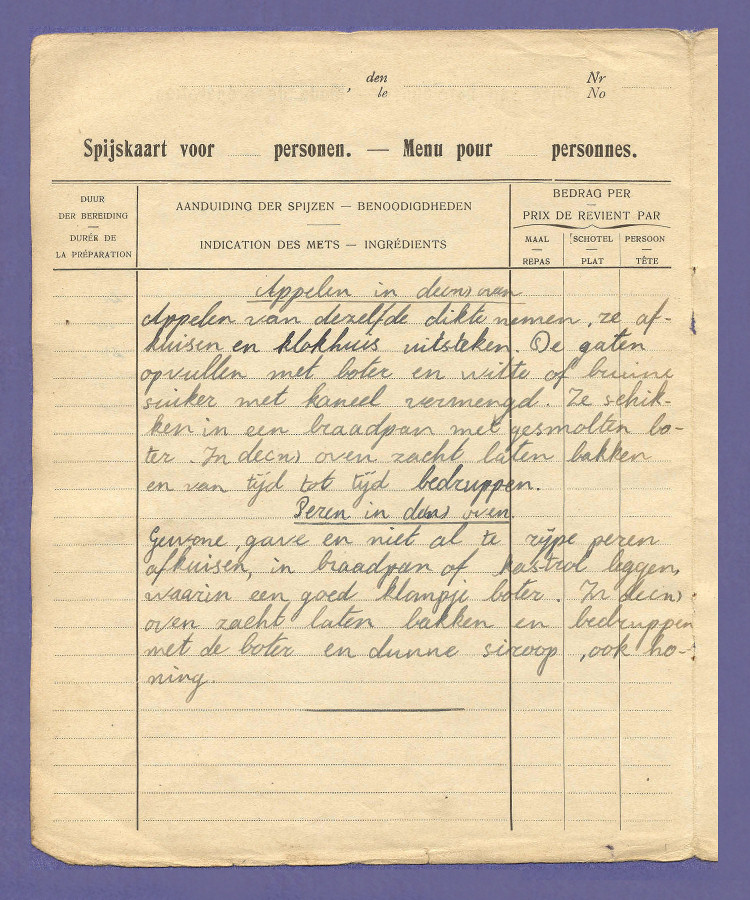 , den Nr
le No
Spijskaart voor personen. — Menu pour personnes.
DUUR DER BEREIDING — DURÉE DE LA PRÉPARATION
AANDUIDING DER SPIJZEN — BENOODIGDHEDEN
INDICATION DES METS — INGRÉDIENTS
BEDRAG PER — PRIX DE REVIENT PAR
MAAL — REPAS
SCHOTEL — PLAT
PERSOON — TÊTE
Appelen in de(n) oven
Appelen van dezelfde dikte nemen, ze af-
kuisen en klokhuis uitsteken. De gaten
opvullen met boter en witte of bruine
suiker met kaneel vermengd. Ze schik-
ken in een braadpan met gesmolten bo-
ter. In de(n) oven zacht laten bakken
en van tijd tot tijd bedruppen.
Peren in de(n) oven.
Gewone, gave en niet al te rijpe peren
afkuisen, in braadpan of kastrol leggen,
waarin een goed klompje boter. In de(n)
oven zacht laten bakken en bedruppen
met de boter en dunne siroop, ook ho-
ning.